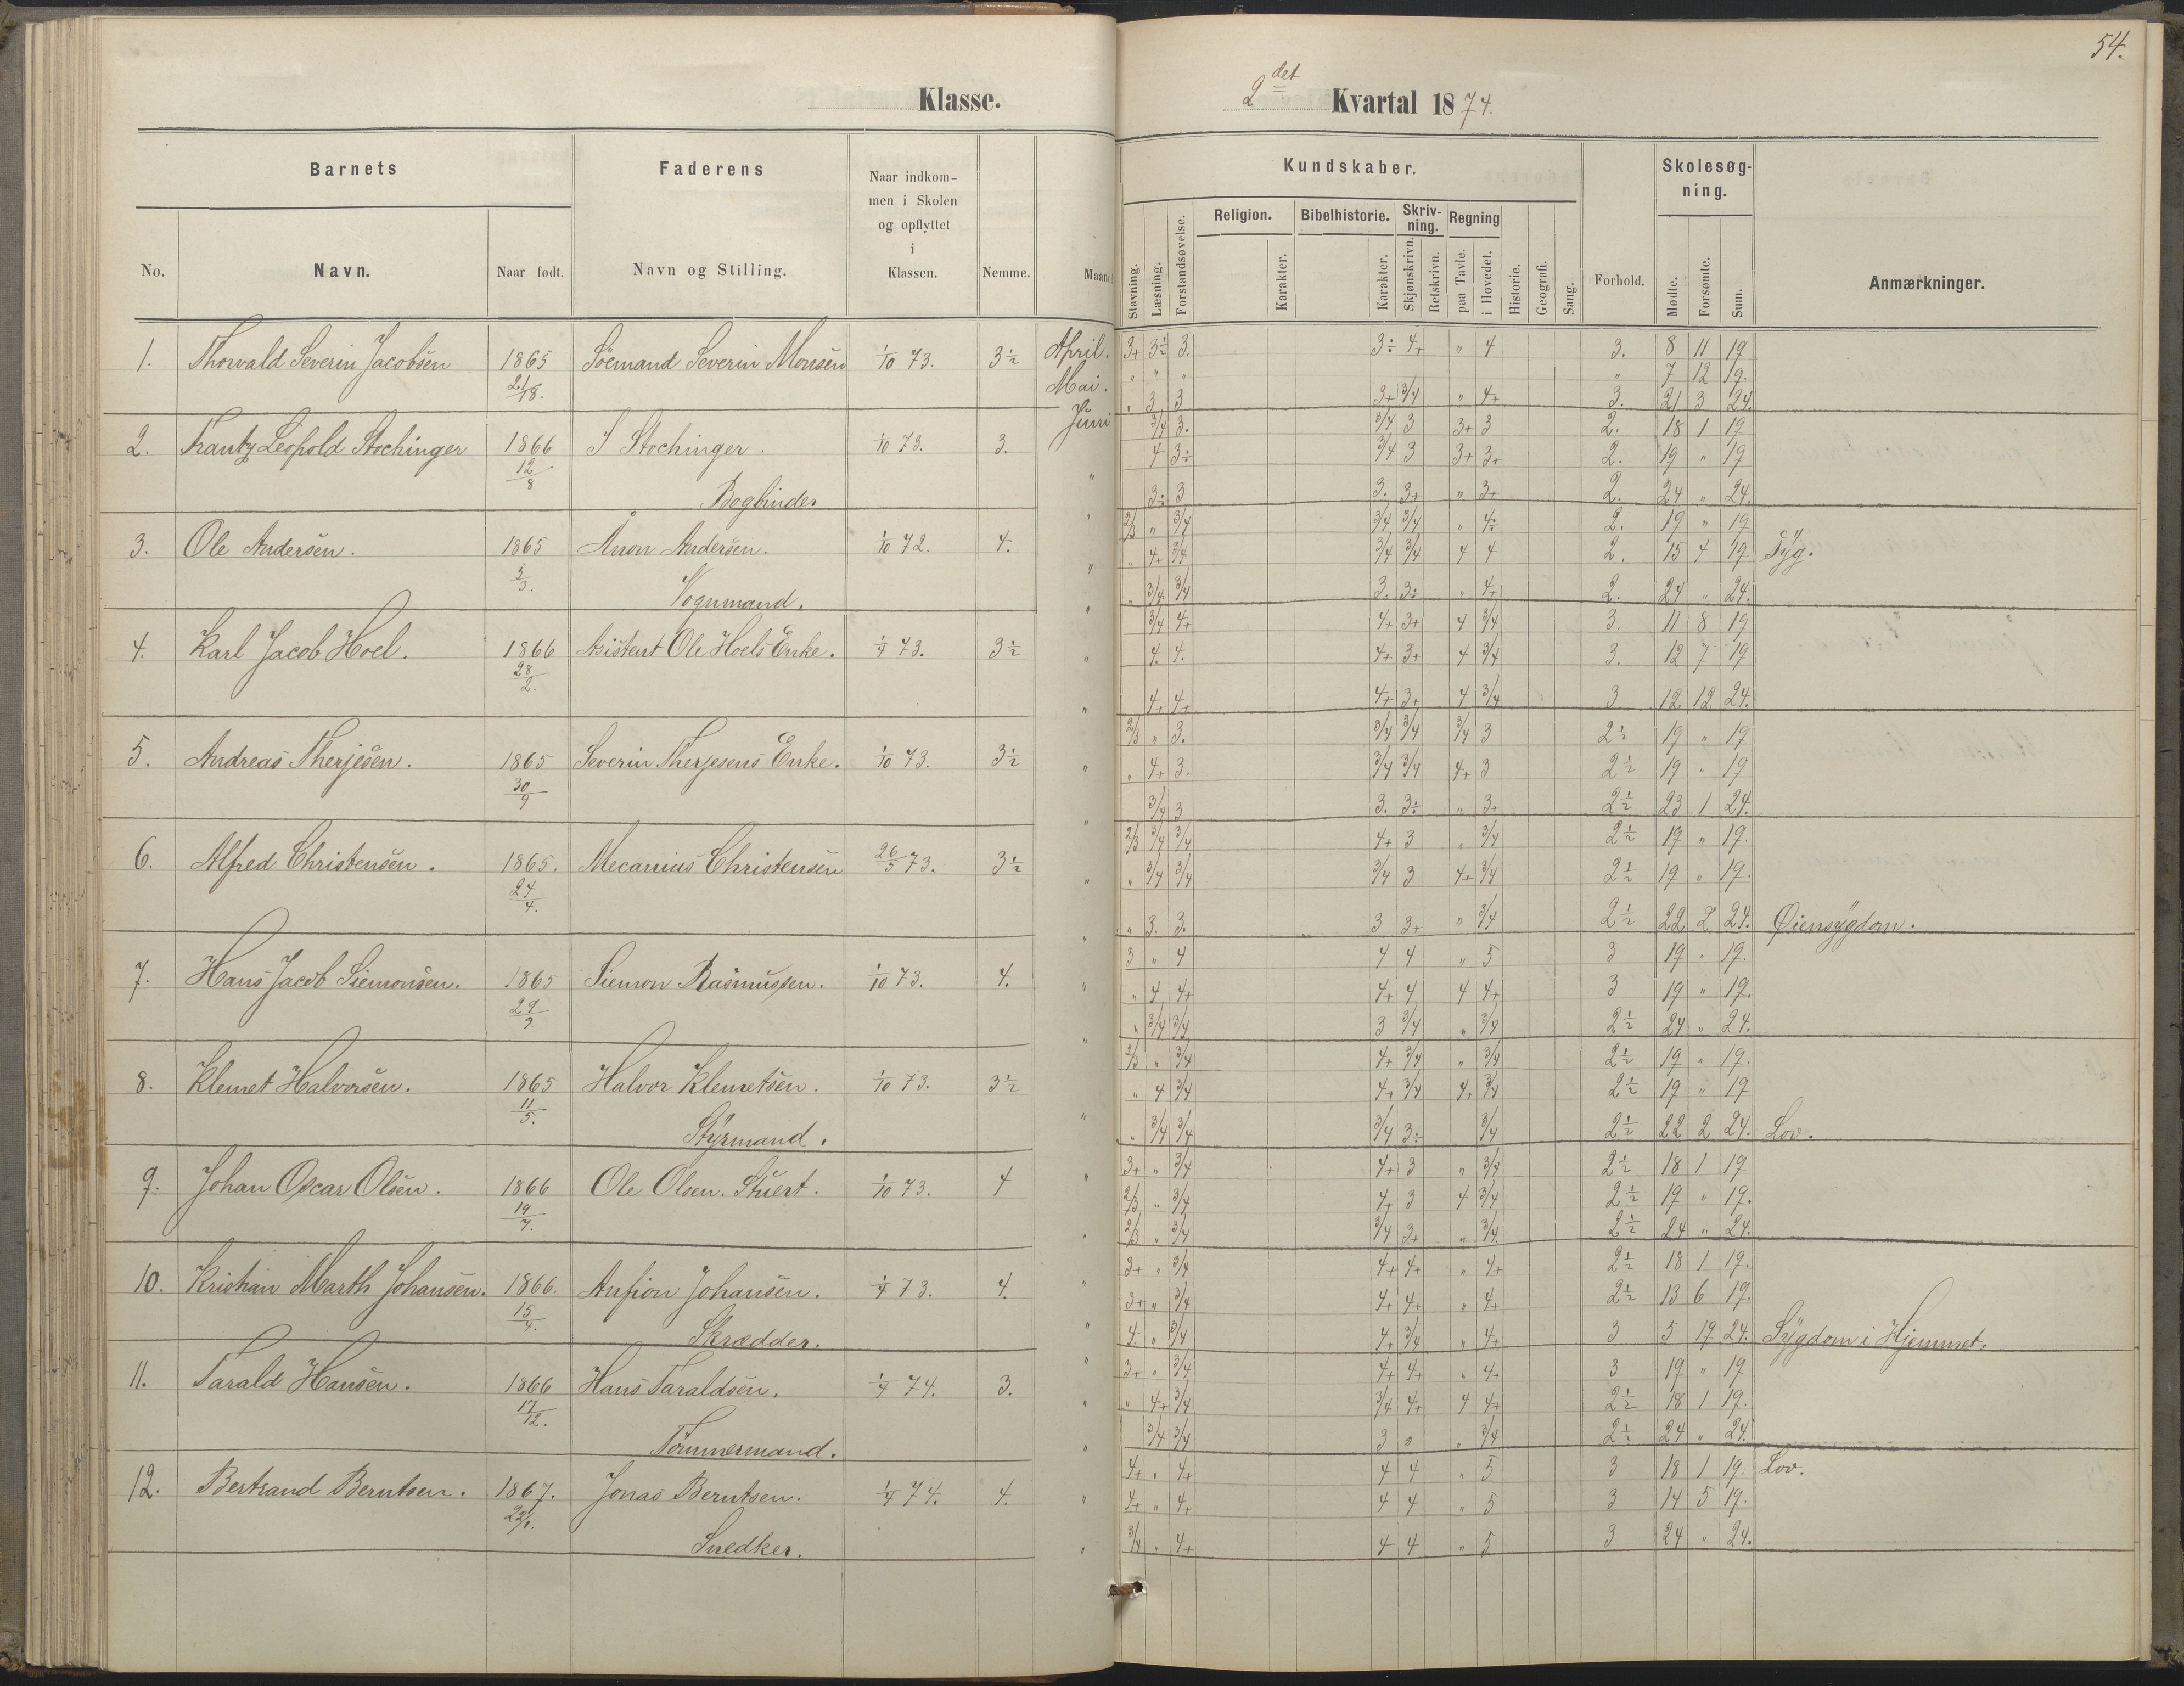 54.
Klasse.
2det Kvartal 1874.
Barnets
Faderens
Naar indkom-
men i Skolen
og opflyttet
i
Klassen.
No.
Navn.
Naar født.
Navn og Stilling.
Nemme.
Maaned
Kundskaber.
Stavning.
Læsning.
Forstandsøvelse.
Religion.
Karakter.
Bibelhistorie.
Karakter.
Skriv-
ning.
Skjønskrivn.
Retskrivn.
Regning
paa Tavle.
i Hovedet.
Historie.
Geografi.
Sang.
Forhold.
Skolesøg-
ning.
Mødte.
Forsømte.
Sum.
Anmærkninger.
1. Thorvald Severin Jacobsen 1865 Söemand Severin Monsen 1/10 73. 3½ April. 3+ 3½ 3. 3÷ 4+ " 4 3. 8 11 19
21/18. Mai. " " " " 7 12 19.
Juni " 3 3 3+ 3/4 " 4+ 3. 21 3 24.
2. Frantz Leopold Stochinger 1866 J Stochinger. 1/10 73. 3. 3/4 3. 3/4 3 3+ 3 2. 18 1 19
12/8 4 3÷ 3/4 3 3+ 3+ 2. 19 " 19
Bogbinder " 3÷ 3 3. 3+ " 3+ 2. 24 " 24.
3. Ole Andersen. 1865 Anon Andersen. 1/10 72. 4. " 2/3 " 3/4 3/4 3/4 " 4÷ 2. 19 " 19
3/3. " " 4+ 3/4 3/4 3/4 4 4 2. 15 4 19 Syg.
Vognmand. " " 3/4 3/4 3. 3÷ " 4+ 2. 24 " 24.
4. Karl Jacob Hoel. 1866 Asistent Ole Hoels Enke. 1/4 73. 3½ 3/4 4+ 4+ 3+ 4 3/4 3. 11 8 19
28/2. " 4. 4. 4+ 3+ 4 3/4 3. 12 7 19
" 4+ 4+ 4+ 3+ 4 3/4 3 12 12 24.
5. Andreas Therjesen. 1865 Severin Therjesens Enke. 1/10 73. 3½ 2/3 " 3. 3/4 3/4 3/4 3 2½ 19 " 19
30/9 " " 4+ 3. 3/4 3/4 4+ 3 2½ 19 " 19
" 3/4 3 3. 3÷ " 3+ 2½ 23 1 24.
6. Alfred Christensen. 1865. Mecanius Christensen 26/5 73. 3½ 2/3 3/4 3/4 4+ 3 " 3/4 2½ 19 " 19.
24/4. " " 3/4 3/4 3/4 3 4+ 3/4 2½ 19 " 19.
" " 3. 3. 3 3+ " 3/4 2½ 22 2 24. Øiensygdom.
7. Hans Jacob Siemonsen. 1865 Siemon Rasmussen. 1/10 73. 4. 3 " 4 4 4 " 5 3 19 " 19.
29/9 " " 4 4+ 4+ 4 4 4+ 3 19 " 19.
" " 3/4 3/4 3 3/4 " 3/4 2½ 24 " 24.
8. Klemet Halvorsen. 1865 Halvor Klemetsen. 1/10 73. 3½ 2/3 " 3/4 4+ 3/4 " 3/4 2½ 19 " 19.
11/5. " 4 3/4 4+ 3/4 4+ 3/4 2½ 19 " 19
Styrmand. " " 3/4 3/4 3/4 3÷ 3/4 2½ 22 2 24. Lov.
9. Johan Oscar Olsen. 1866 Ole Olsen. Stuert. 1/10 73. 4 " 3+ " 3/4 4+ 3 " 3/4 2½ 18 1 19
19/7. 2/3 " 3/4 4+ 3 4 3/4 2½ 19 " 19.
" 2/3 " 3/4 3/4 3+ " 3/4 2½ 24 " 24.
10. Kristian Marth Johansen. 1866. Anfion Johansen. 1/4 73. 4. " 3+ " 3/4 4+ 4+ " 4+ 2½ 18 1 19.
15/4. 3+ " 3/4 4+ 4+ " 4+ 2½ 13 6 19.
Skrædder. " 4 " 3/4 4+ 3/4 " 4+ 3 5 19 24. Sygdom i Hjemmet.
11. Tarald Hansen. 1866 Hans Taraldsen. 1/4 74. 3. " 3+ " 3/4 4+ 4+ " 4+ 3 19 " 19
17/12. " " 4+ 3/4 3/4 4+ 4 4+ 2½ 18 1 19.
Tømmermand. " 3/4 3/4 3 " " 3/4 2½ 24 " 24.
12. Bertrand Berntsen. 1867. Jonas Berntsen. 1/4 74. 4. 4+ " 4+ 4 4 " 5 3 18 1 19. Lov.
22/1. " 4+ " 4+ 4 4 " 5 3 14 5 19.
Snedker. " 3/4 " 4+ 4 4 " 5 3 24 " 24.